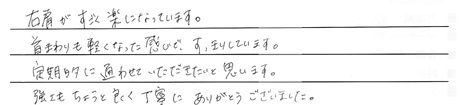 右肩がすごく楽になっています。
首まわりも軽くなった感じで、すっきりしています。
定期的に通わせていただきたいと思います。
強さもちょうど良く丁寧にありがとうございました。